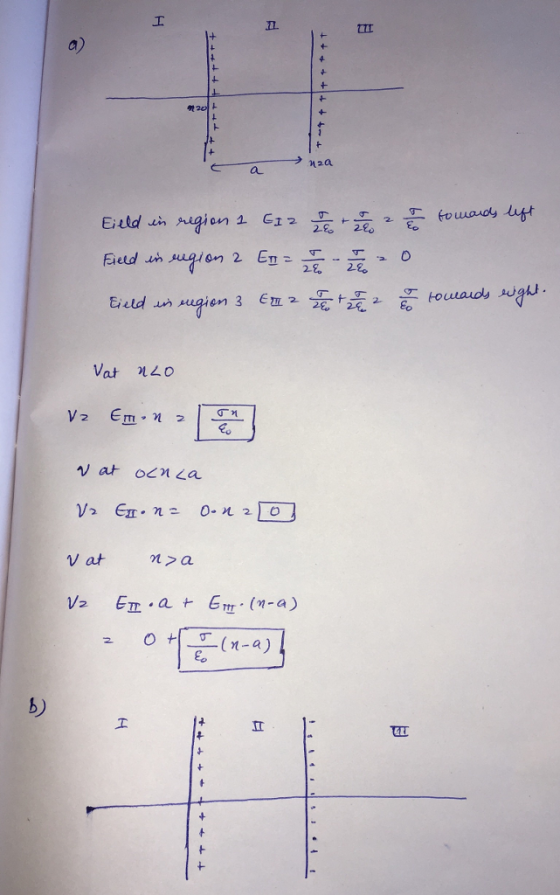 a)
I II III
+ + + + + + + + + +
+ + + + + + + + + +
x=0
a
x=a
Field in region 1 E_I = σ/2ε₀ + σ/2ε₀ = σ/ε₀ towards left
Field in region 2 E_II = σ/2ε₀ - σ/2ε₀ = 0
Field in region 3 E_III = σ/2ε₀ + σ/2ε₀ = σ/ε₀ towards right.
V at x<0
V= E_III · x = σx/ε₀
V at 0<x<a
V= E_II · x = 0·x = 0
V at x>a
V= E_II · a + E_III · (x-a)
= 0 + σ/ε₀ (x-a)
b)
I II III
+ + + + + + + + + +
- - - - - - - - - -